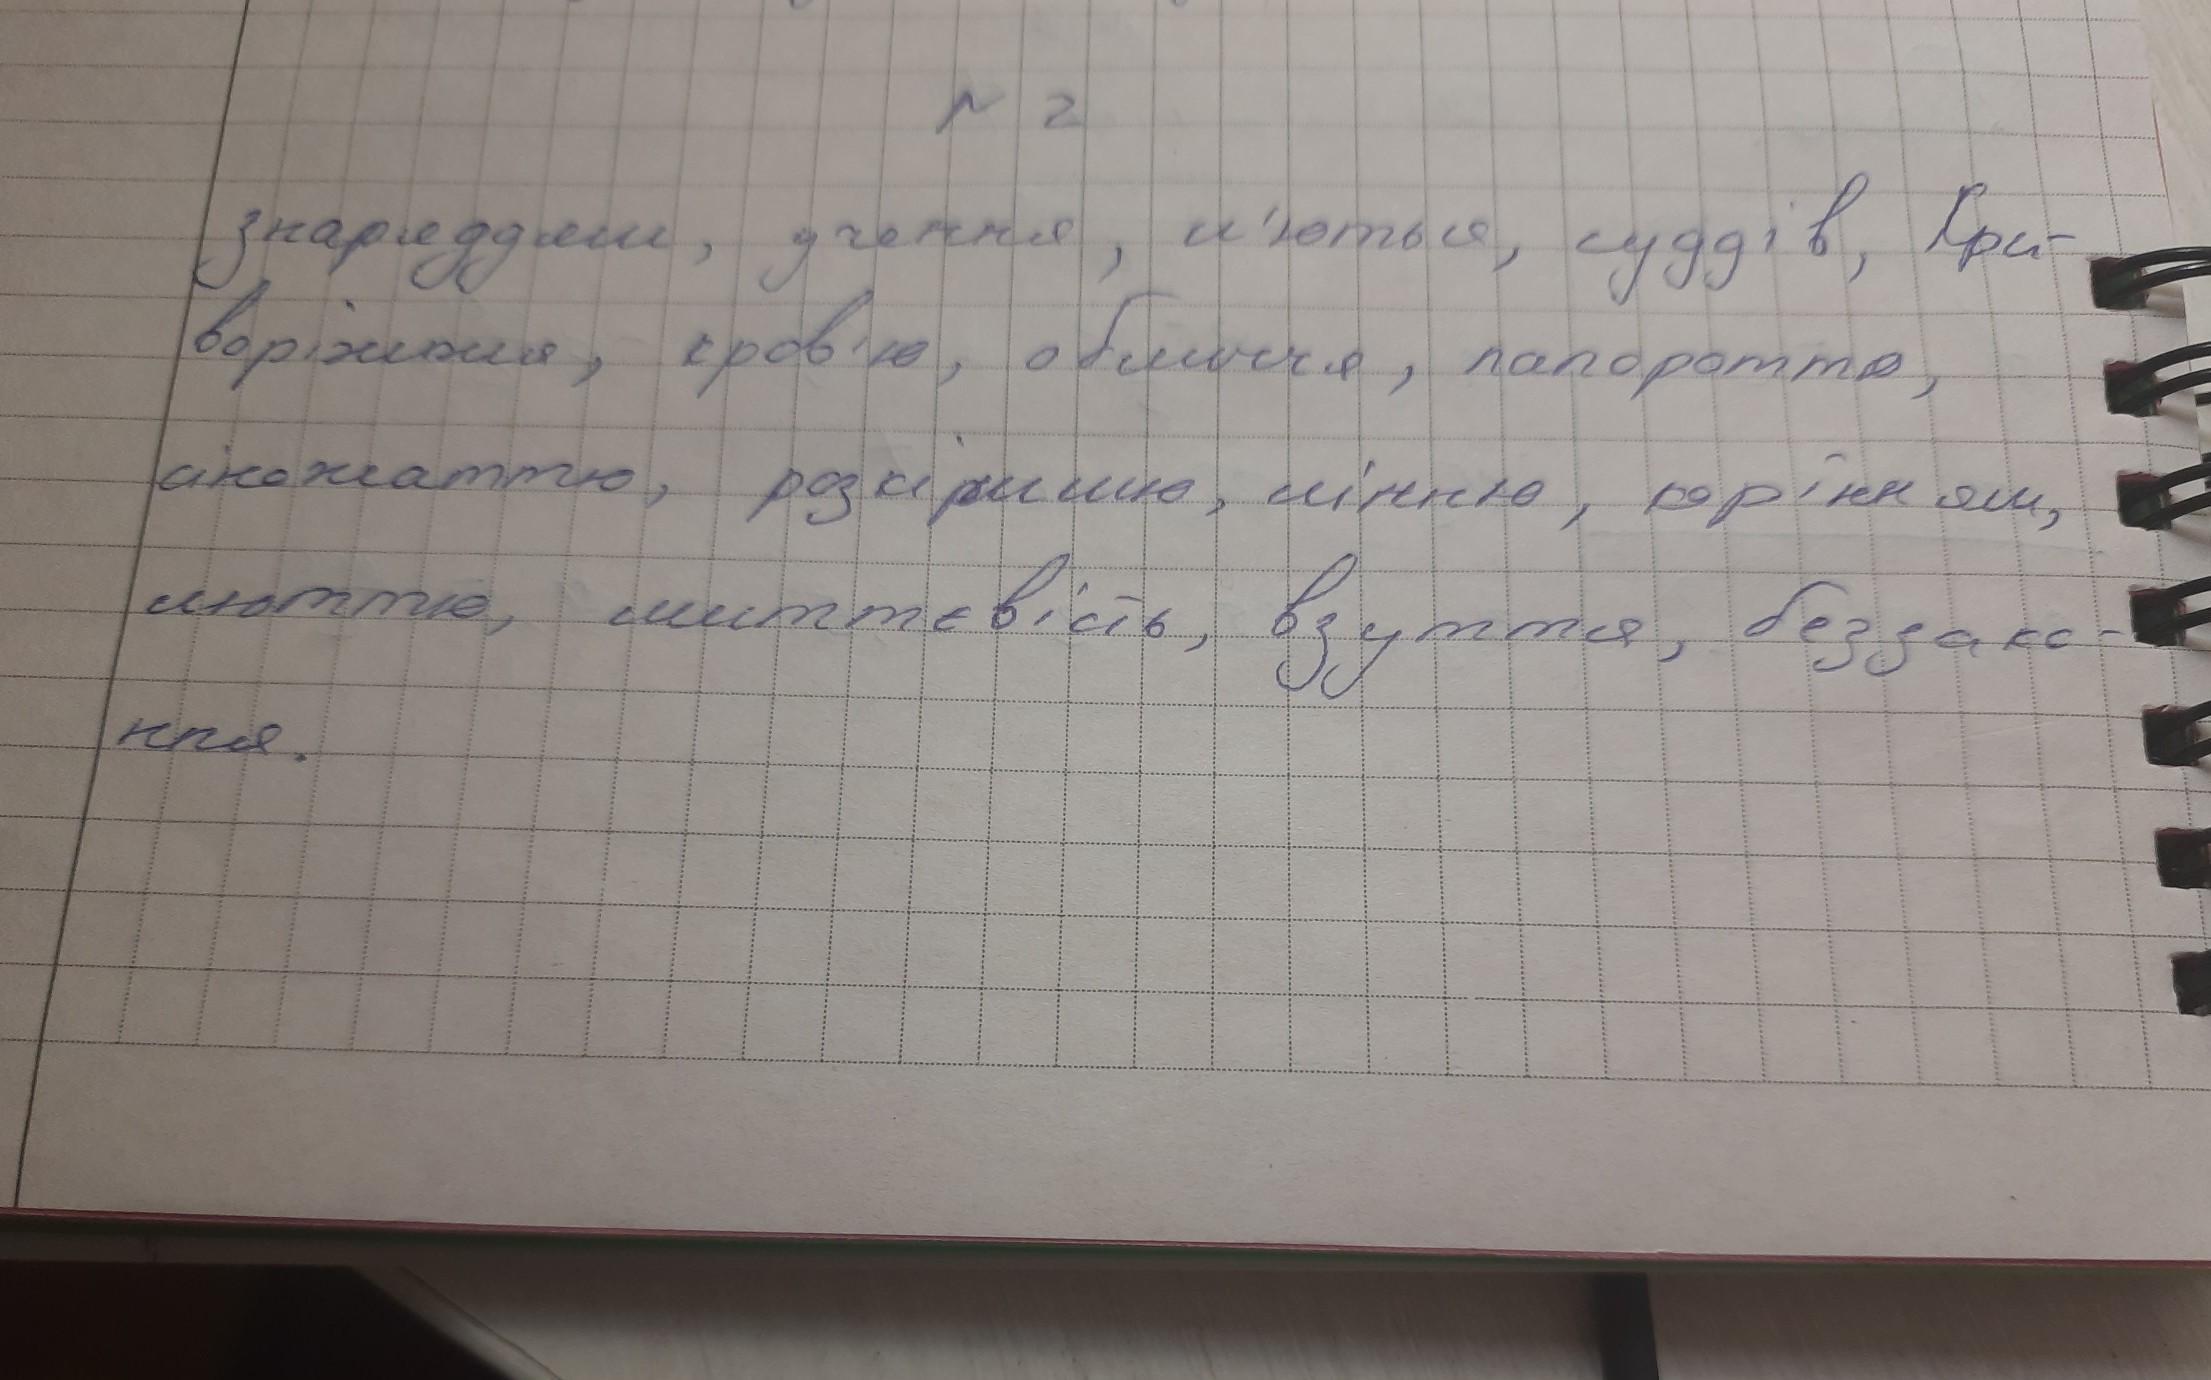 № 2
знаряддям, учення, п'ються, суддів, Кри-
воріжжя, кров'ю, обличчя, папороттю,
сіножаттю, розкішшю, лінню, корінням,
люттю, миттєвість, взуття, беззако-
ння.